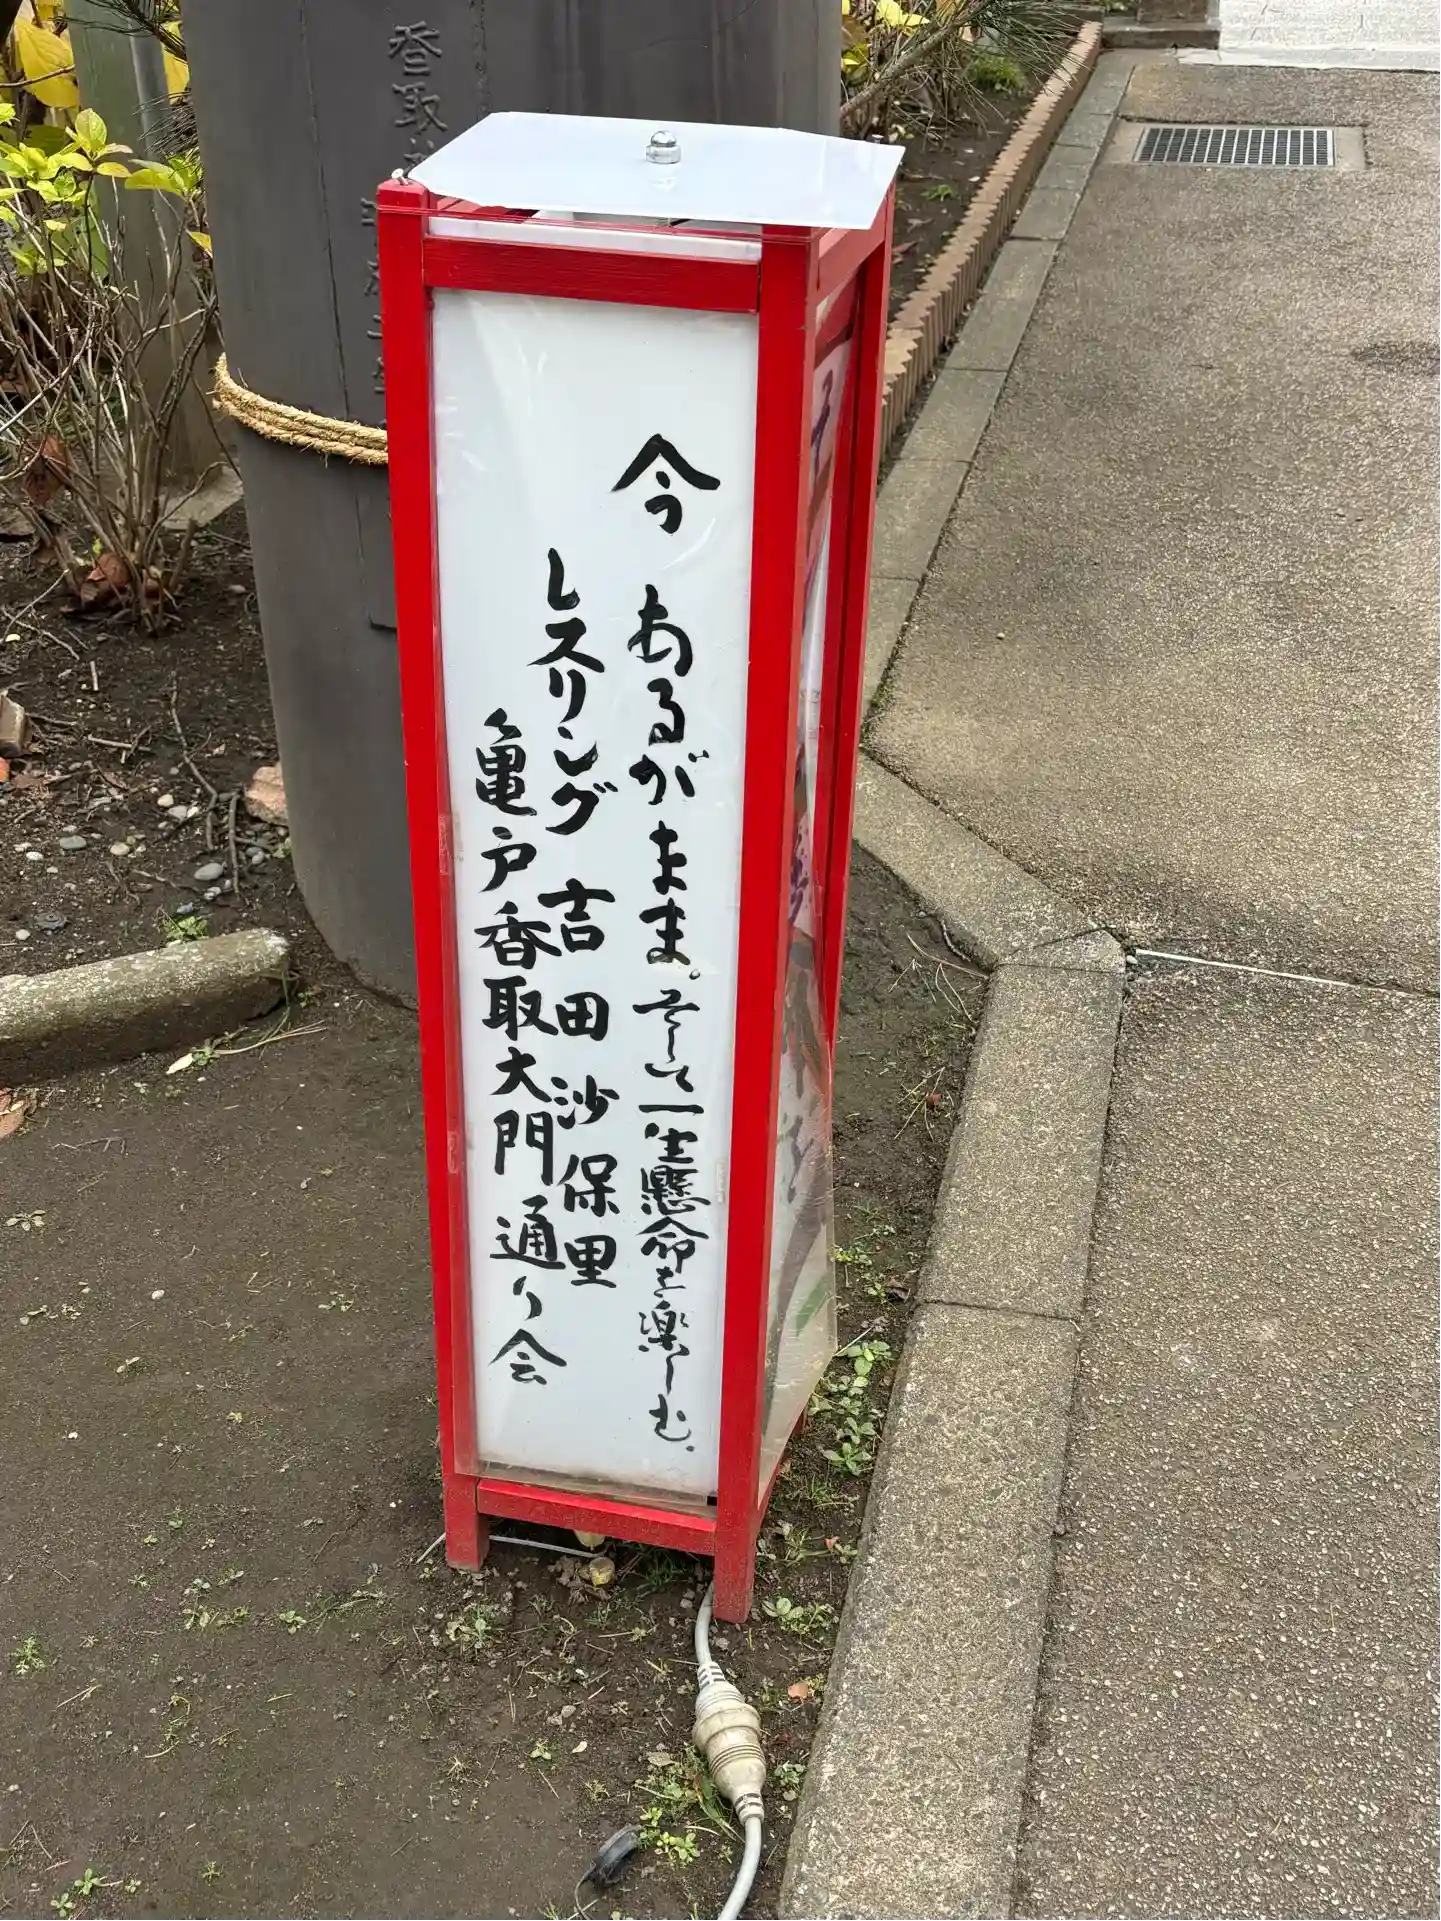 今 あるがまま。そして一生懸命を楽しむ.
レスリング 吉田沙保里
亀戸香取大門通り会
香取